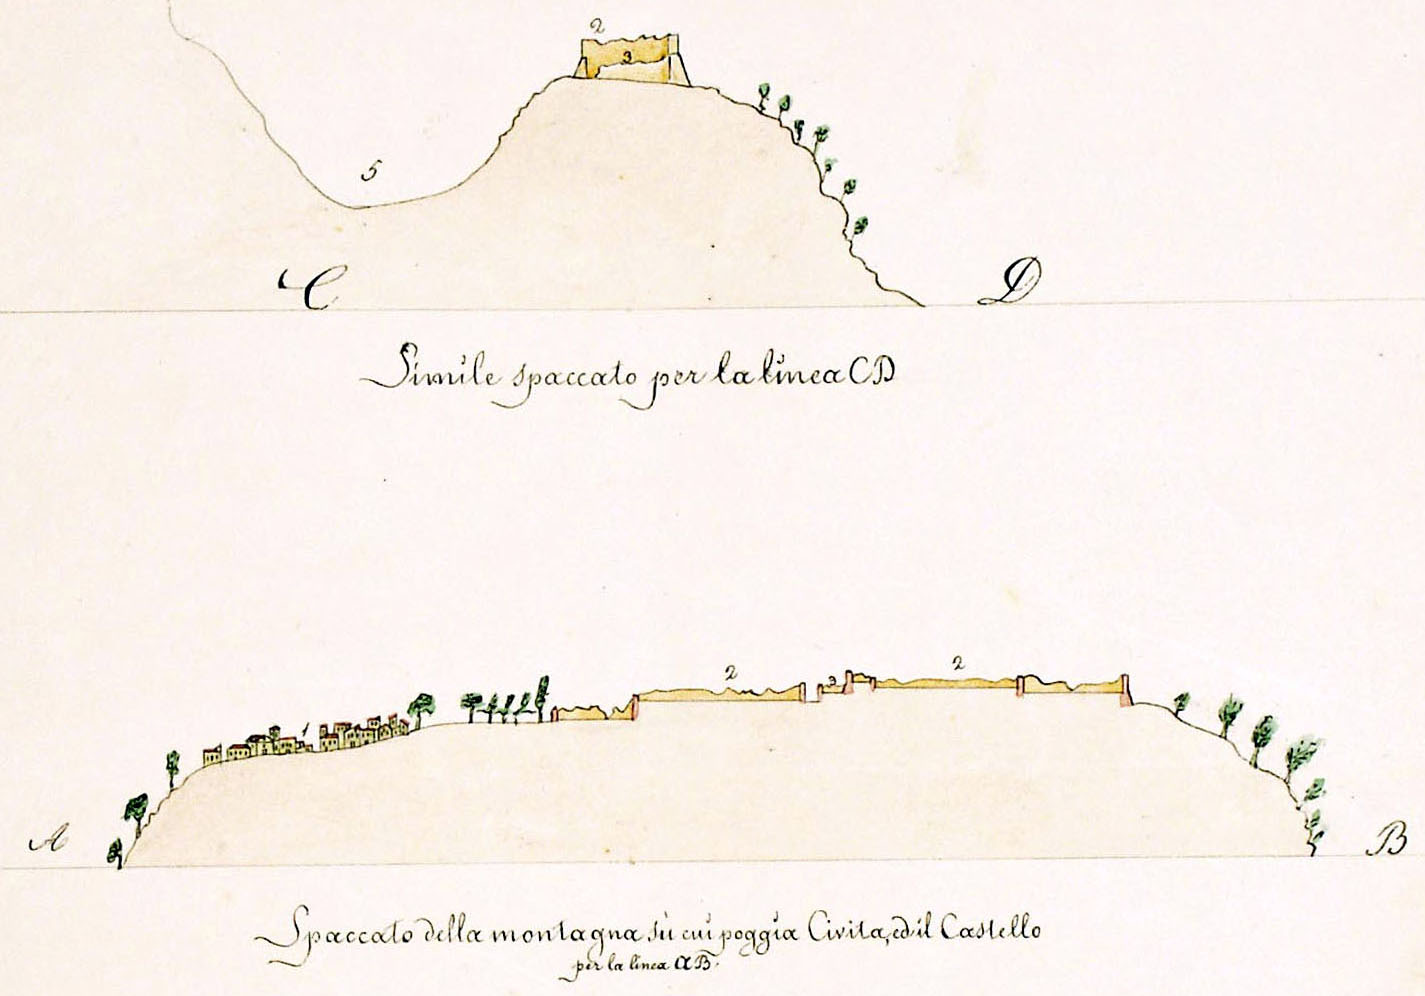 2
3
5
C D
Simile spaccato per la linea CD
2 2
3
1
A B
Spaccato della montagna sù cui poggia Civita, ed il Castello
per la linea AB.